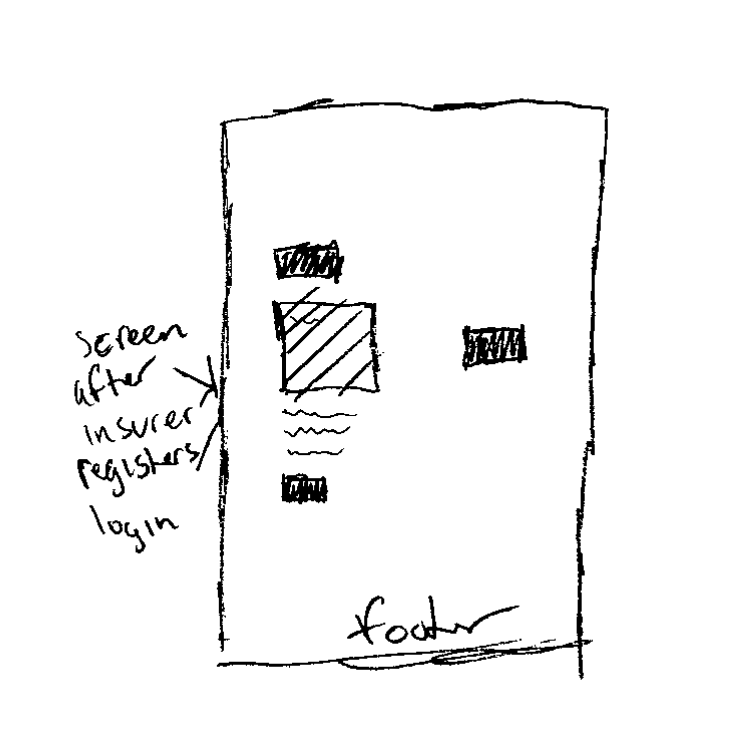 screen
after
insurer
registers/
login
footer